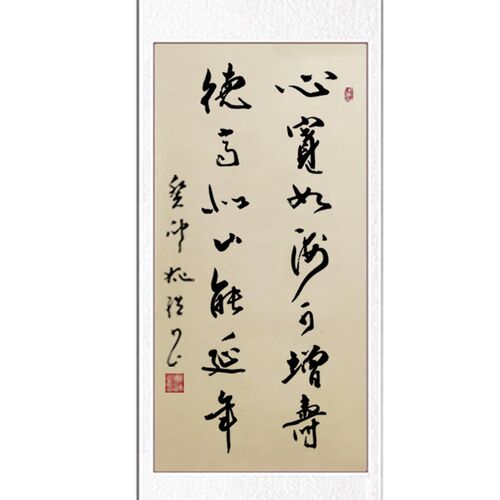 心寬如海可增壽
德高似山能延年